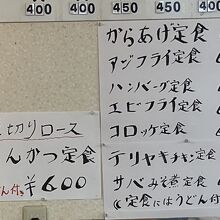 400 400 450 450 450
からあげ定食
アジフライ定食
ハンバーグ定食
エビフライ定食
コロッケ定食
テリヤキチキン定食
サバみそ煮定食
《定食にはうどん付
切りロース
んかつ定食
¥600